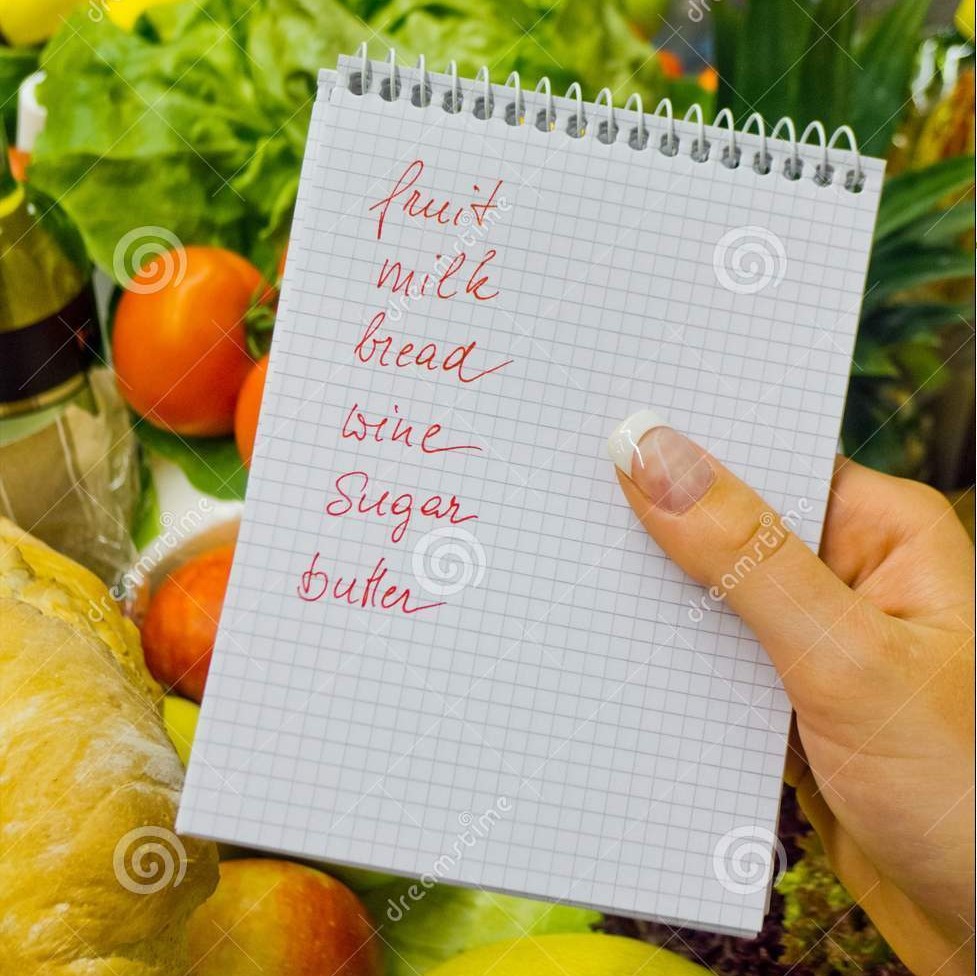 fruit
milk
bread
wine
Sugar
butter
dreamstime
dreamstime
dreamstime
dreamstime
dreamstime